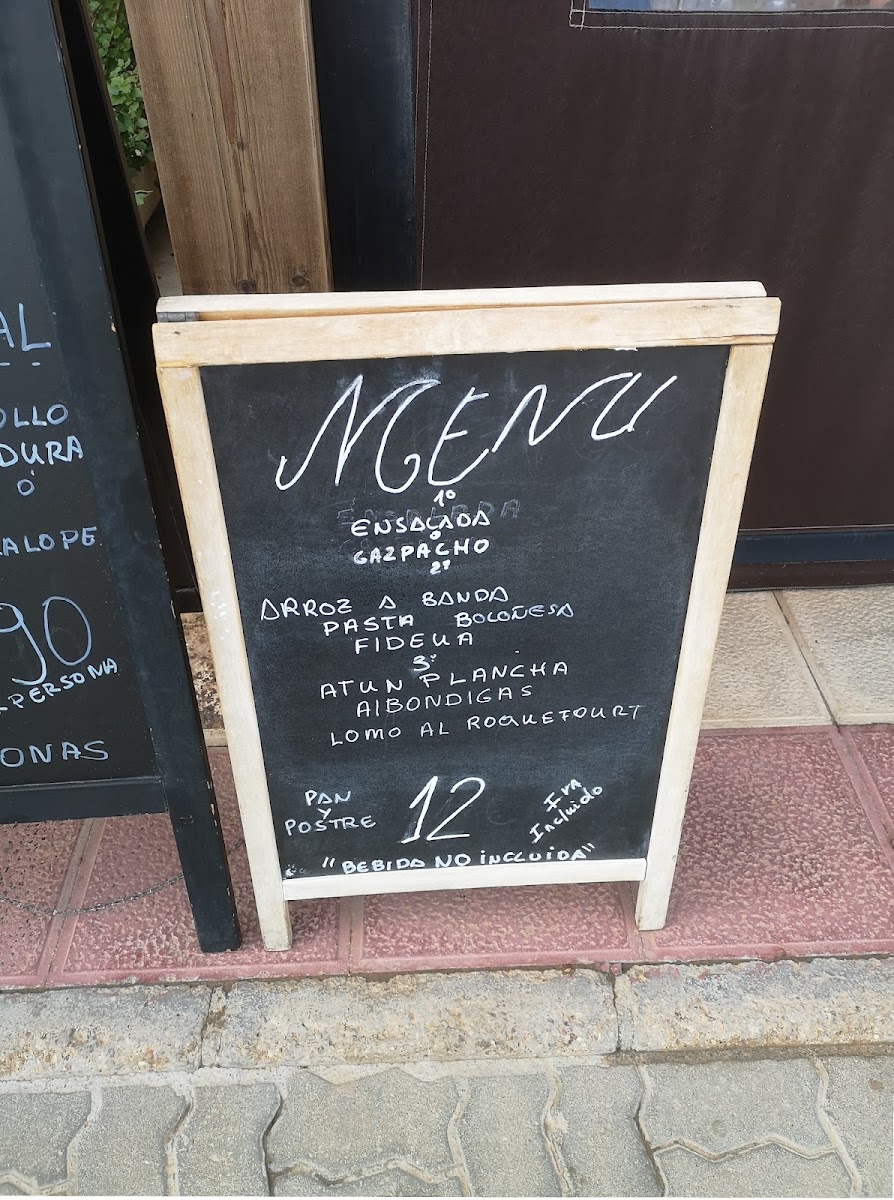 AL
OLLO
DURA
O
ALOPE
90
PERSONA
ONAS
MENU
1º
ENSALADA
O
GAZPACHO
2º
ARROZ A BANDA
PASTA BOLOÑESA
FIDEUA
3º
ATUN PLANCHA
AIBONDIGAS
LOMO AL ROQUEFOURT
PAN
Y
POSTRE
12
Iva
Incluido
"BEBIDA NO INCLUIDA"